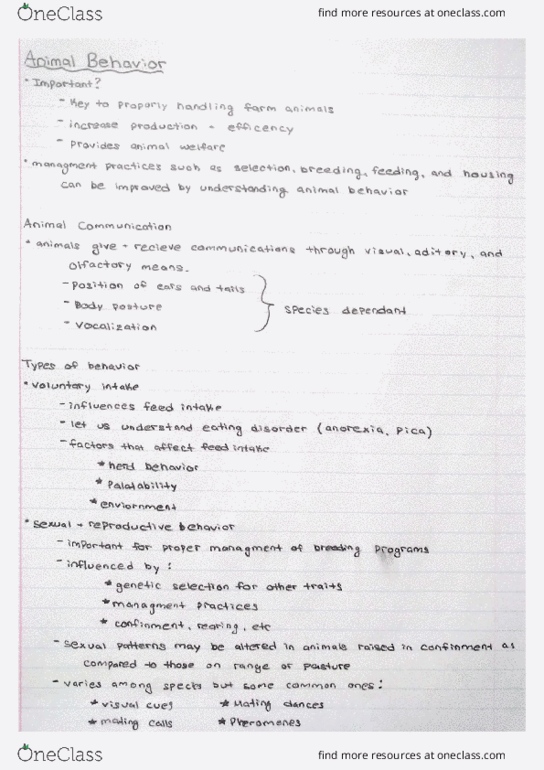 OneClass find more resources at oneclass.com
Animal Behavior
• Important?
- Key to proporly handling farm animals
- increase production + efficency
- provides animal welfare
• managment practices such as selection, breeding, feeding, and housing
can be improved by understanding animal behavior
Animal Communication
• animals give + recieve communications through visual, aditory, and
olfactory means.
- position of ears and tails
- Body posture
- vocalization
species dependant
Types of behavior
• voluntary intake
- influences feed intake
- let us understand eating disorder (anorexia, pica)
- factors that affect feed intake
* herd behavior
* Palatability
* enviornment
• sexual + reproductive behavior
- important for proper managment of breeding programs
- influenced by:
* genetic selection for other traits
* managment practices
* confinment, rearing, etc
- sexual patterns may be altered in animals raised in confinment as
compared to those on range or pasture
- varies among spects but some common ones:
* visual cues * Mating dances
* mating calls * Pheromones
OneClass find more resources at oneclass.com